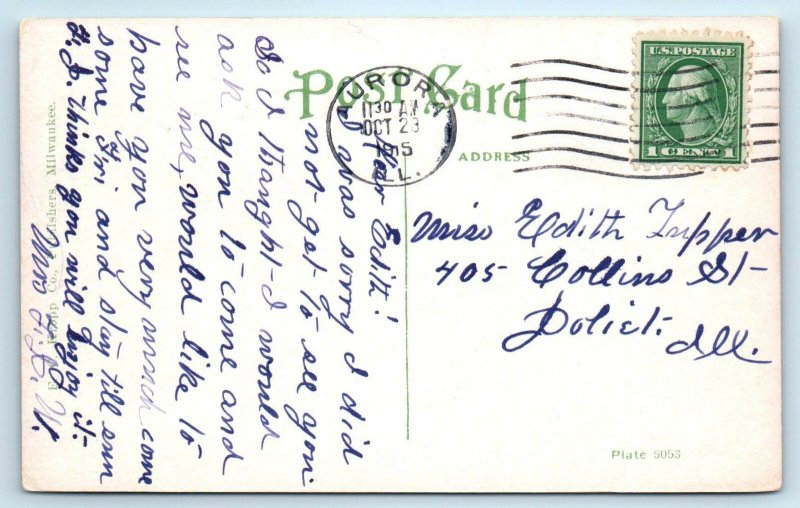 Post Card
AURORA
11 30 AM
OCT 23
1915
ILL.
U.S. POSTAGE
1 CENT 1
ADDRESS
Miss Edith Tupper
405 Collins St-
Joliet.
Ill.
Plate 5053
Dear Edith!
I was sorry I did
not get to see you.
So I thought I would
ask you to come and
see me, would like to
have you very much come
some Fri and stay till sun
H. J. thinks you will enjoy it-
Mrs H. J. W.
Co., Publishers, Milwaukee.